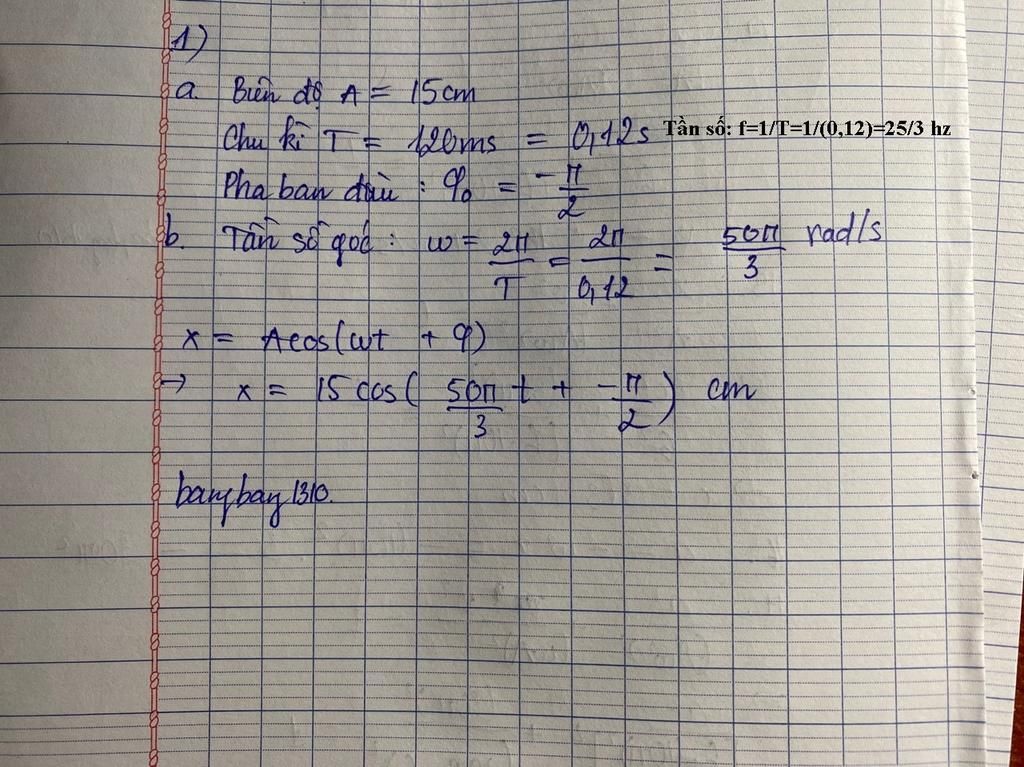 1)
a. Biên độ A = 15cm
Chu kì T = 120ms = 0,12s Tần số: f=1/T=1/(0,12)=25/3 hz
Pha ban đầu : φ₀ = -π/2
b. Tần số góc : ω = 2π/T = 2π/0,12 = 50π/3 rad/s
x = Acos(ωt + φ)
→ x = 15 cos( 50π/3 t + -π/2 ) cm
baybay1310.